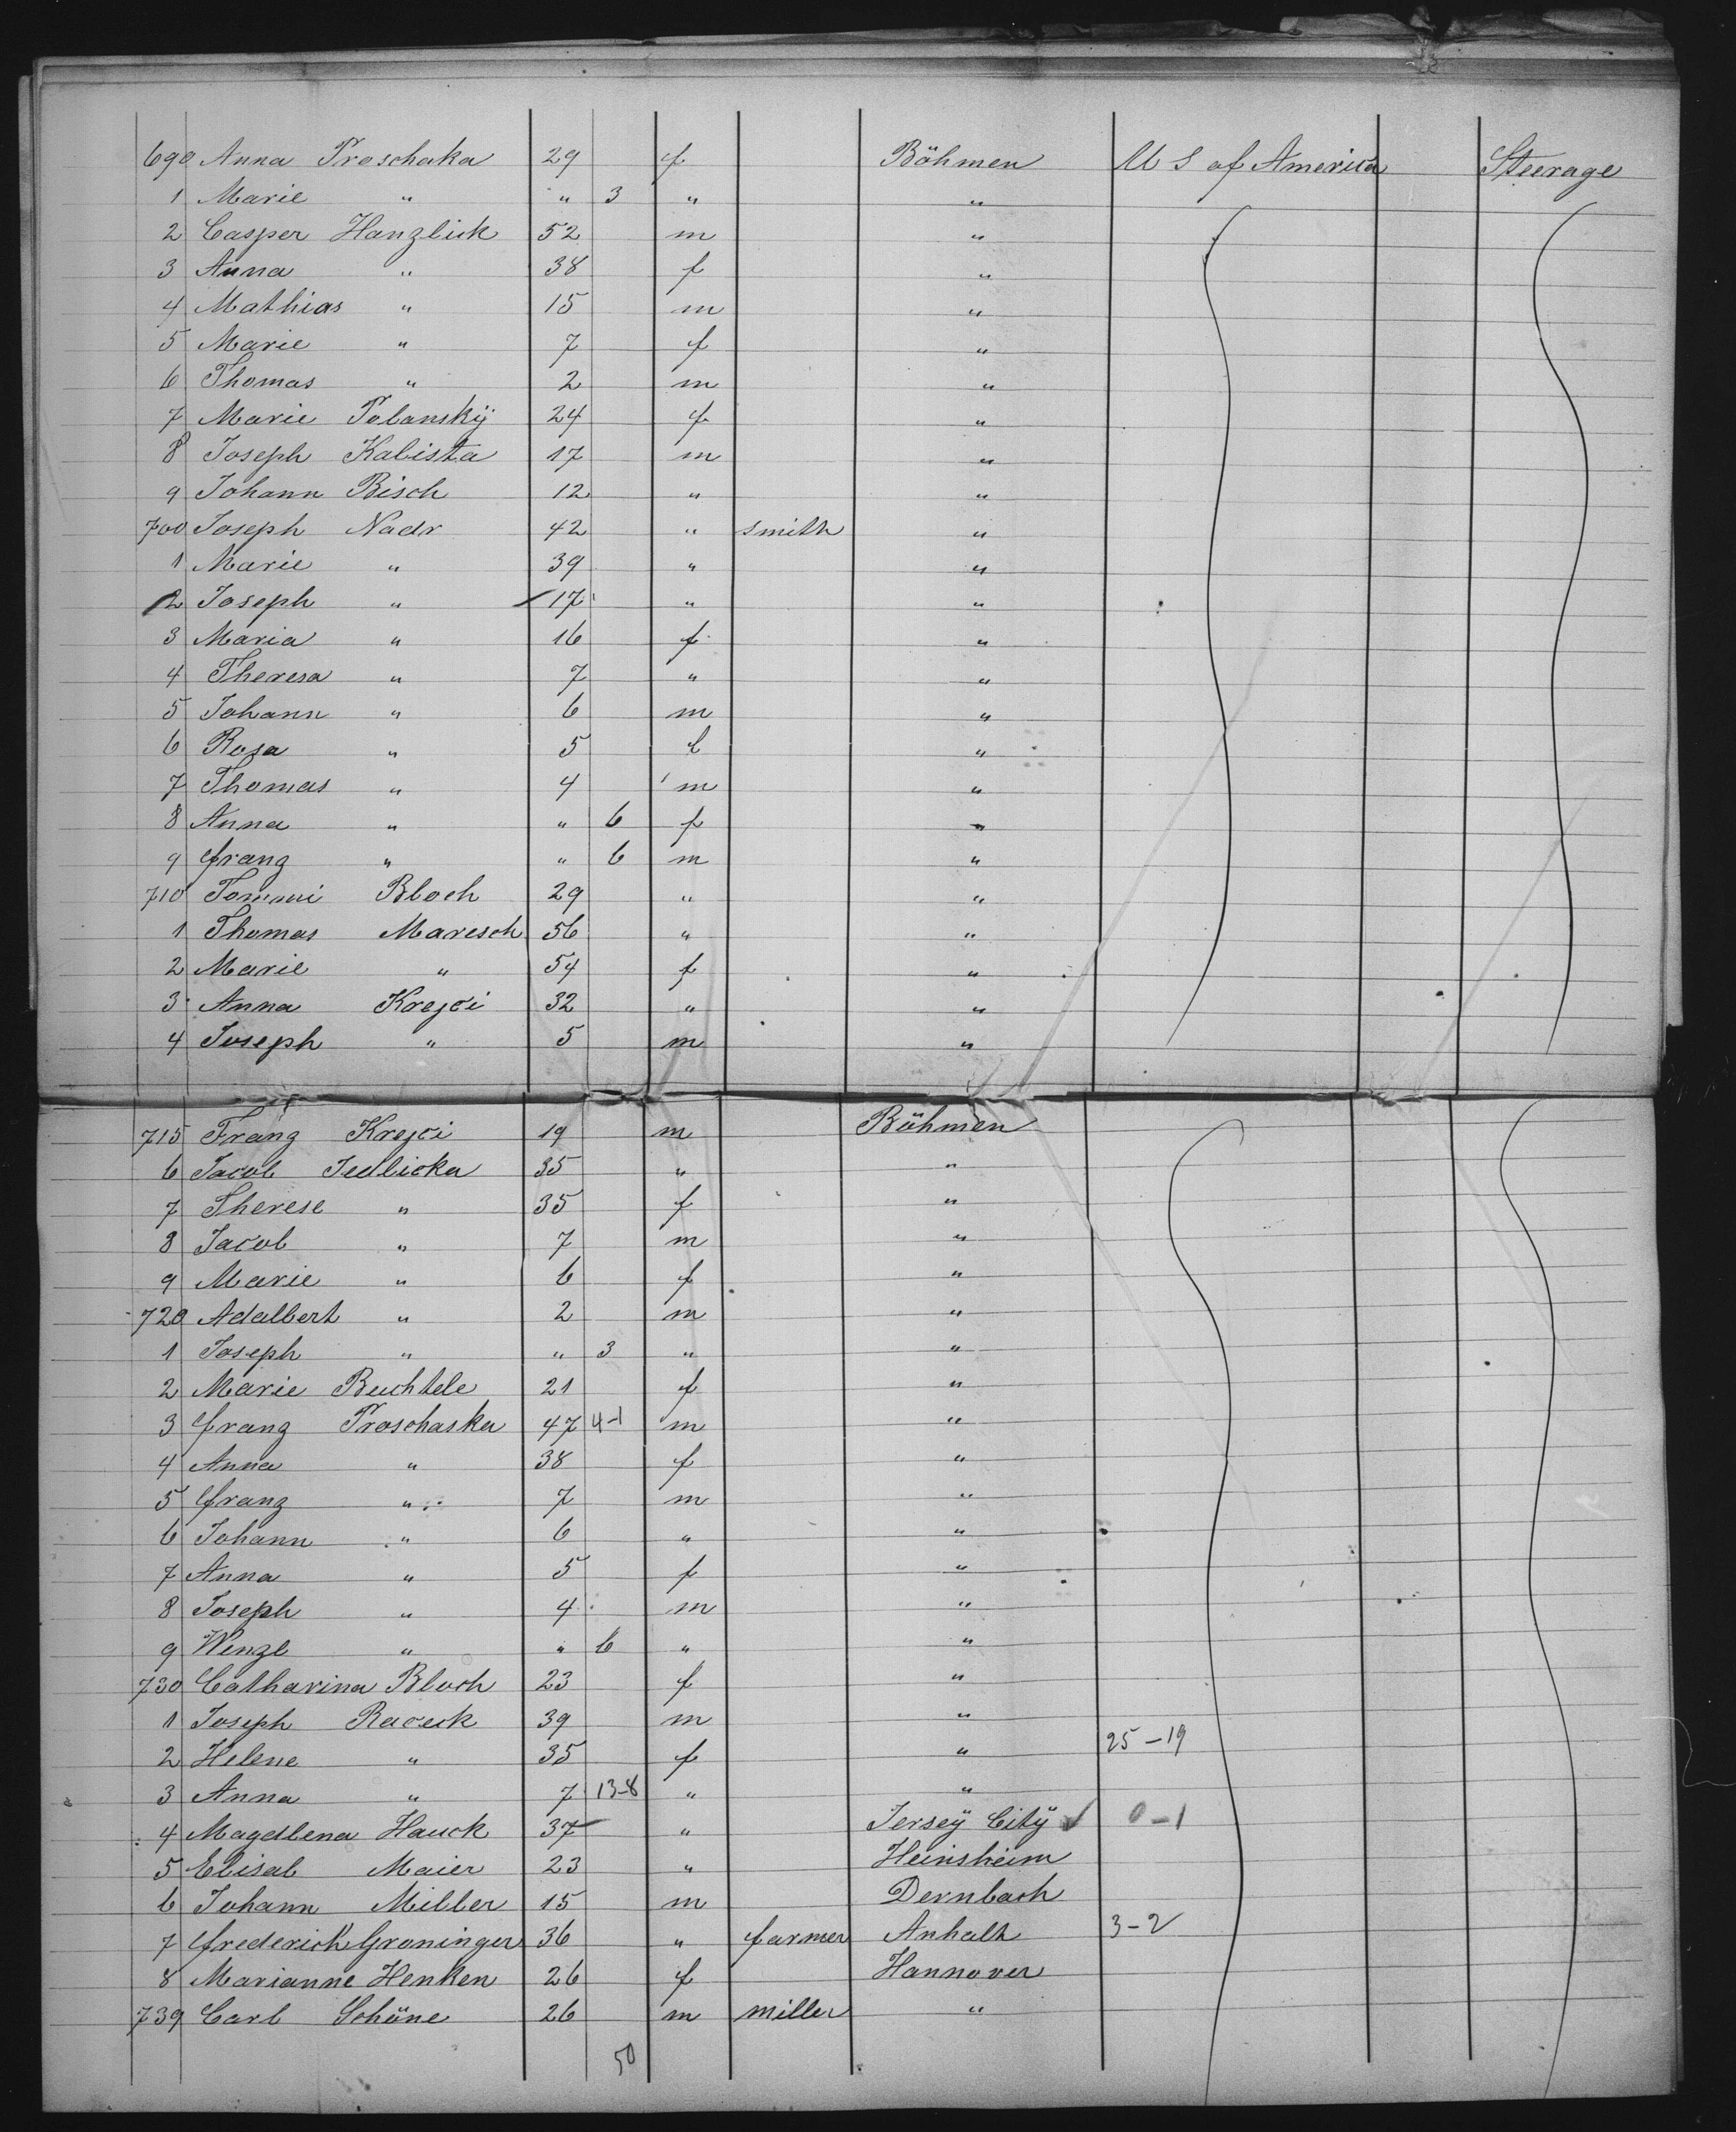 690 Anna Proschaka 29 f Böhmen U S of America Steerage
1 Marie " " 3 " "
2 Casper Hanzlick 52 m "
3 Anna " 38 f "
4 Mathias " 15 m "
5 Marie " 7 f "
6 Thomas " 2 m "
7 Marie Polanskÿ 24 f "
8 Joseph Kabista 17 m "
9 Johann Bisch 12 " "
700 Joseph Nadr 42 " smith "
1 Marie " 39 " "
2 Joseph " 17 " "
3 Maria " 16 f "
4 Theresa " 7 " "
5 Johann " 6 m "
6 Rosa " 5 f "
7 Thomas " 4 m "
8 Anna " " 6 f "
9 Franz " " 6 m "
710 Bloch 29 " "
1 Thomas Maresch 56 " "
2 Marie " 54 f "
3 Anna Krejci 32 " "
4 Joseph " 5 m "
715 Franz Krejci 19 m Böhmen
6 Jacob Jedlicka 35 " "
7 Therese " 35 f "
8 Jacob " 7 m "
9 Marie " 6 f "
720 Adalbert " 2 m "
1 Joseph " " 3 " "
2 Marie Buchtele 21 f "
3 Franz Proschaska 47 4-1 m "
4 Anna " 38 f "
5 Franz " 7 m "
6 Johann " 6 " "
7 Anna " 5 f "
8 Joseph " 4 m "
9 Wenzl " " 6 " "
730 Catharina Bloch 23 f "
1 Joseph Raceck 39 m "
2 Helene " 35 f " 25-19
3 Anna " 7 13-8 " "
4 Magdlena Hauck 37 " Jerseÿ Citÿ ✓ 0-1
5 Elisab Maier 23 " Heinsheim
6 Johann Miller 15 m Dernbach
7 Frederick Groninger 36 " farmer Anhalt 3-2
8 Marianne Henken 26 f Hannover
739 Carl Schöne 26 m miller "
50